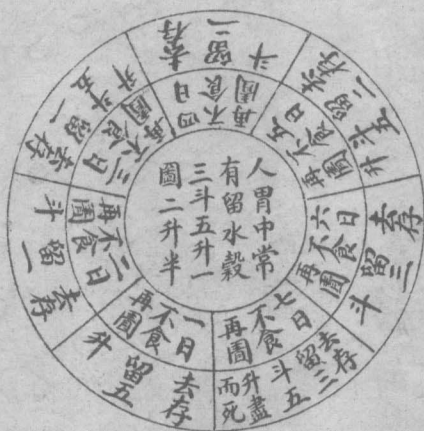 人胃中常
有留水穀
三斗五升一
圊二升半
一日不食再圊
去存留五升
二日不食再圊
去存留一斗
三日不食再圊
去存留一斗五升
四日不食再圊
去存留二斗
五日不食再圊
去存留二斗五升
六日不食再圊
去存留三斗
七日不食再圊
去存留三斗五升盡而死